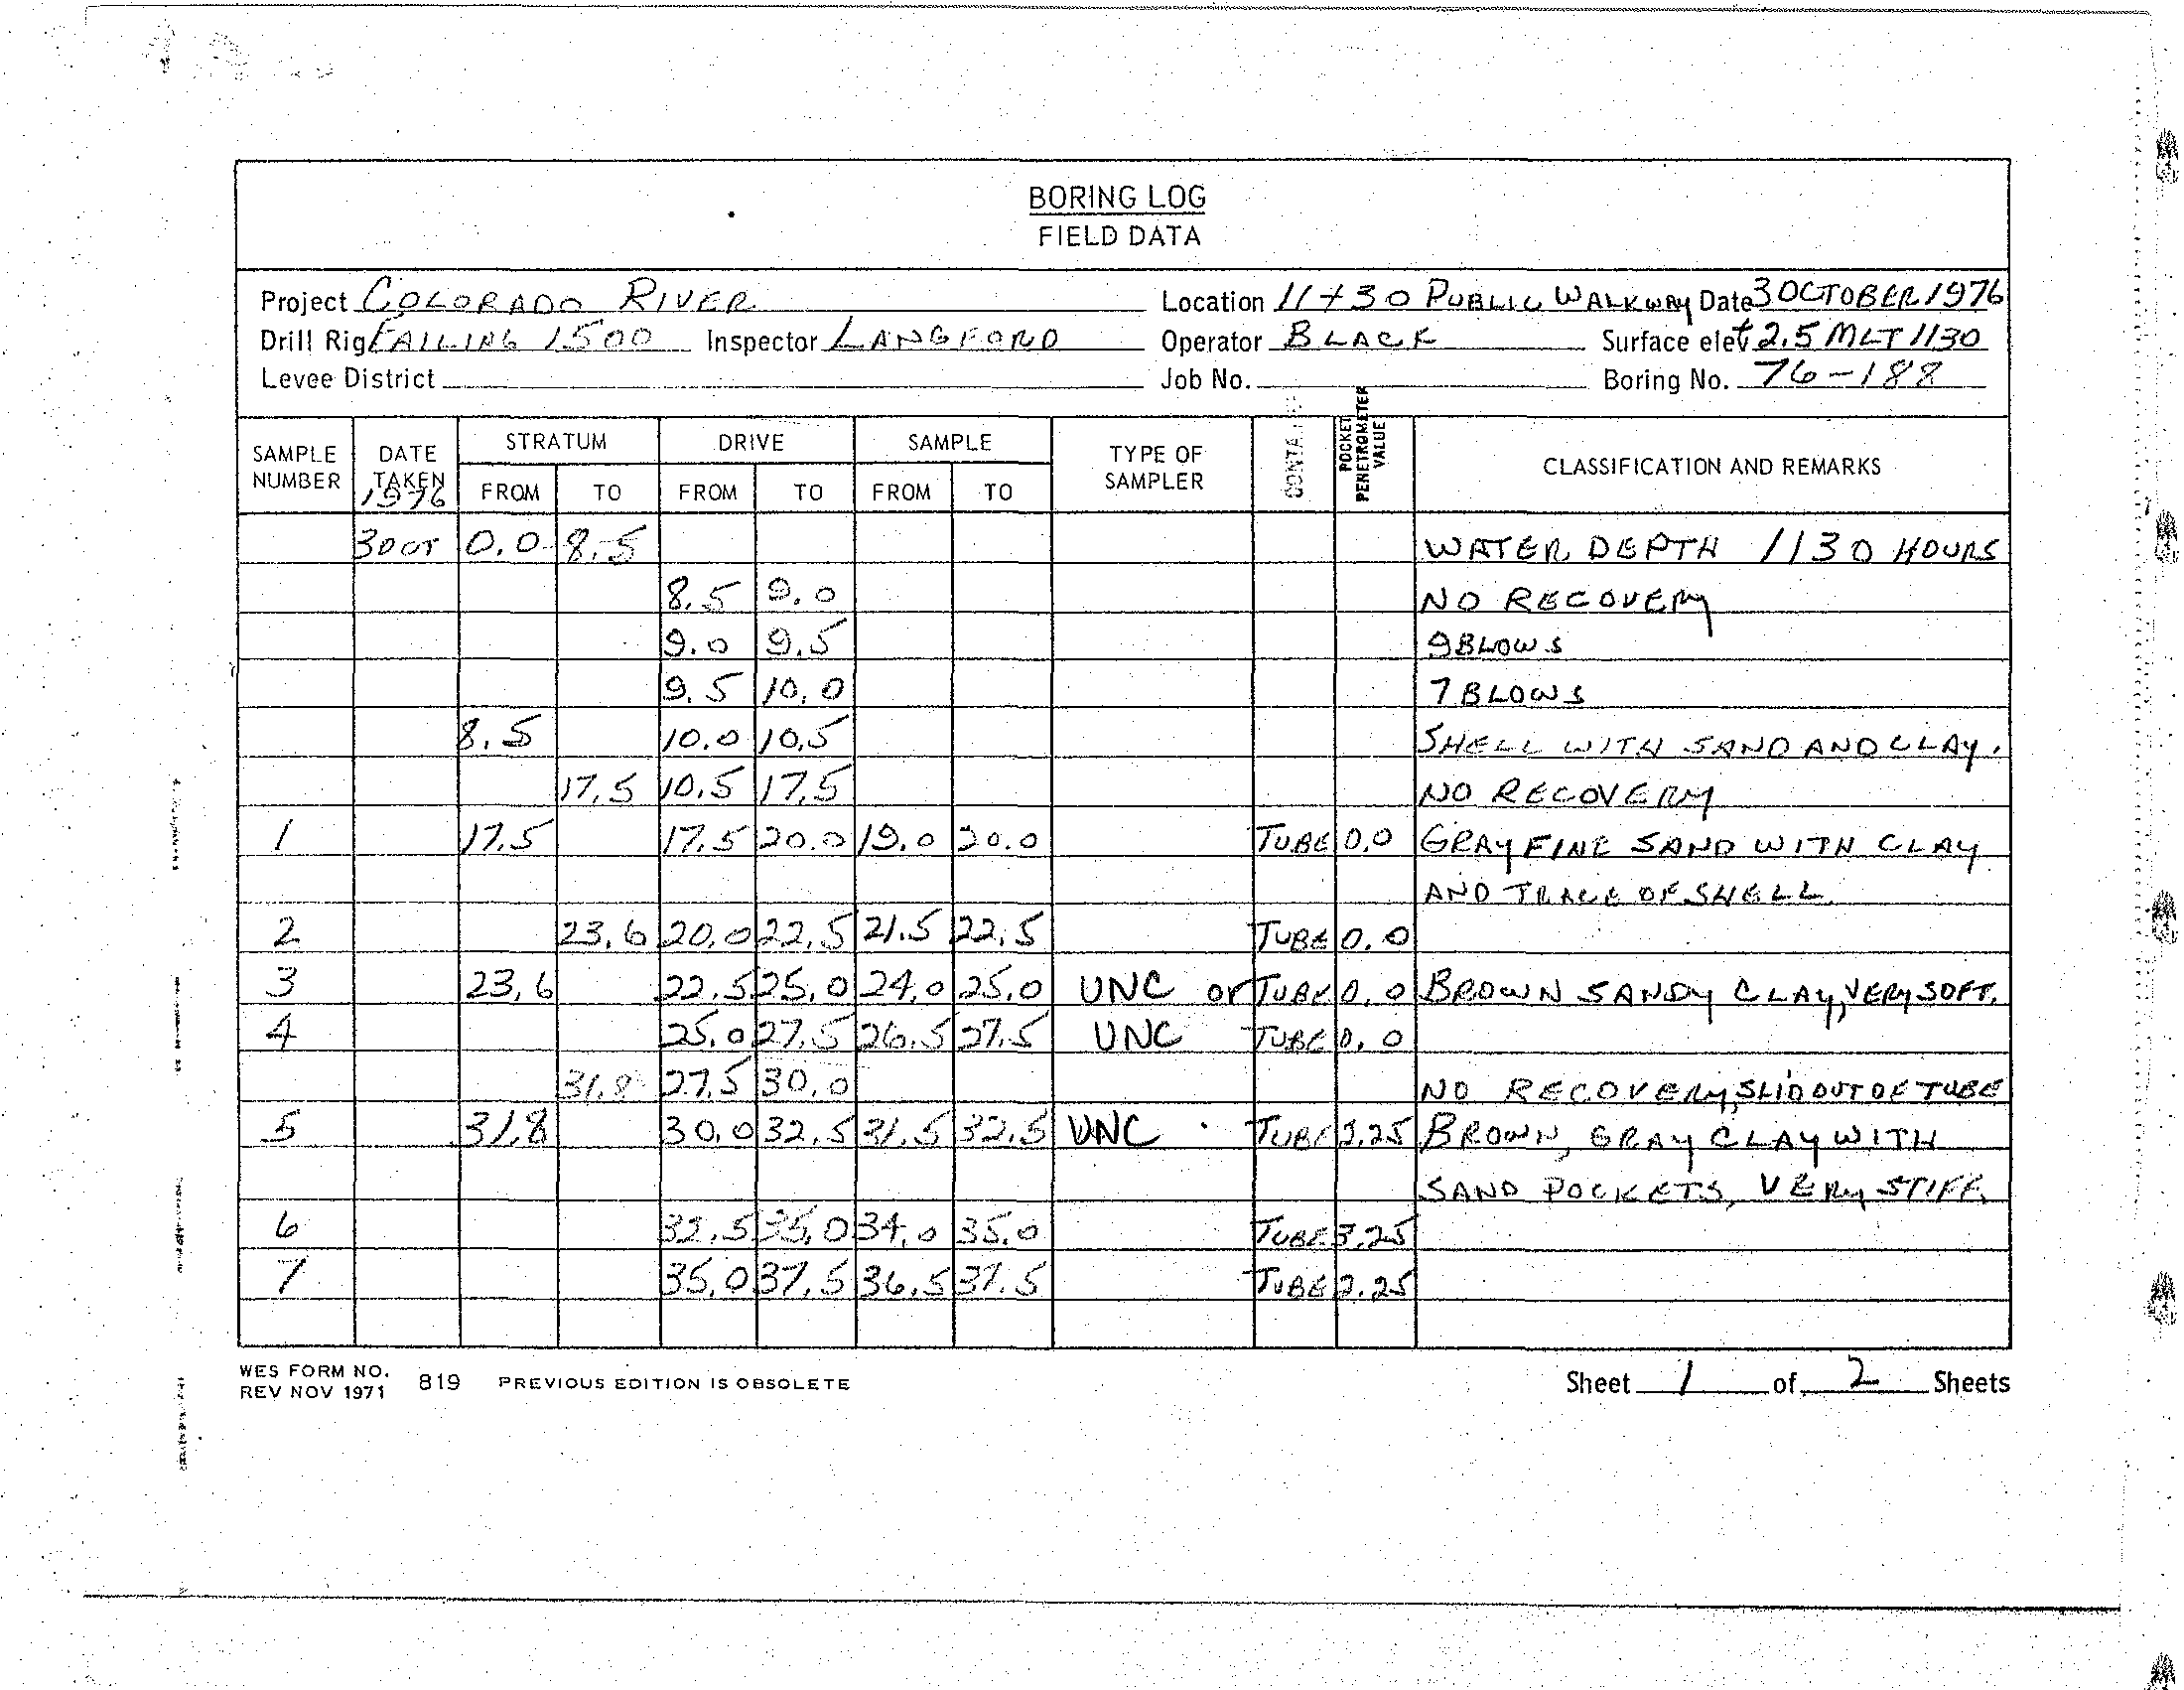 BORING LOG
FIELD DATA
Project COLORADO RIVER Location 11+30 PUBLIC WALKWAY Date 3 OCTOBER 1976
Drill Rig FAILING 1500 Inspector LANGFORD Operator BLACK Surface elev + 2.5 MLT 1130
Levee District Job No. Boring No. 76-188
SAMPLE NUMBER DATE TAKEN 1976 STRATUM FROM TO DRIVE FROM TO SAMPLE FROM TO TYPE OF SAMPLER POCKET PENETROMETER VALUE CLASSIFICATION AND REMARKS
3 OCT 0.0 8.5 WATER DEPTH 1130 HOURS
8.5 9.0 NO RECOVERY
9.0 9.5 9 BLOWS
9.5 10.0 7 BLOWS
8.5 10.0 10.5 SHELL WITH SAND AND CLAY.
17.5 10.5 17.5 NO RECOVERY
1 17.5 17.5 20.0 19.0 20.0 TUBE 0.0 GRAY FINE SAND WITH CLAY
AND TRACE OF SHELL.
2 23.6 20.0 22.5 21.5 22.5 TUBE 0.0
3 23.6 22.5 25.0 24.0 25.0 UNC or TUBE 0.0 BROWN SANDY CLAY, VERY SOFT.
4 25.0 27.5 26.5 27.5 UNC TUBE 0.0
31.8 27.5 30.0 NO RECOVERY, SLID OUT OF TUBE
5 31.8 30.0 32.5 31.5 32.5 UNC TUBE BROWN, GRAY CLAY WITH
SAND POCKETS, VERY STIFF.
6 32.5 35.0 34.0 35.0 TUBE 3.25
7 35.0 37.5 36.5 37.5 TUBE
WES FORM NO. 819 PREVIOUS EDITION IS OBSOLETE
REV NOV 1971
Sheet 1 of 2 Sheets